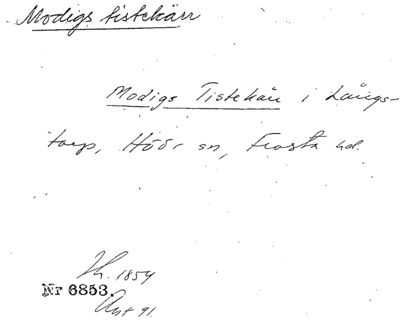 Modigs tistekärr
Modigs Tistekärr i Långs-
torp, Höör sn, Frosta hd.
Th. 1854
Nr 6853.
Ant 91.